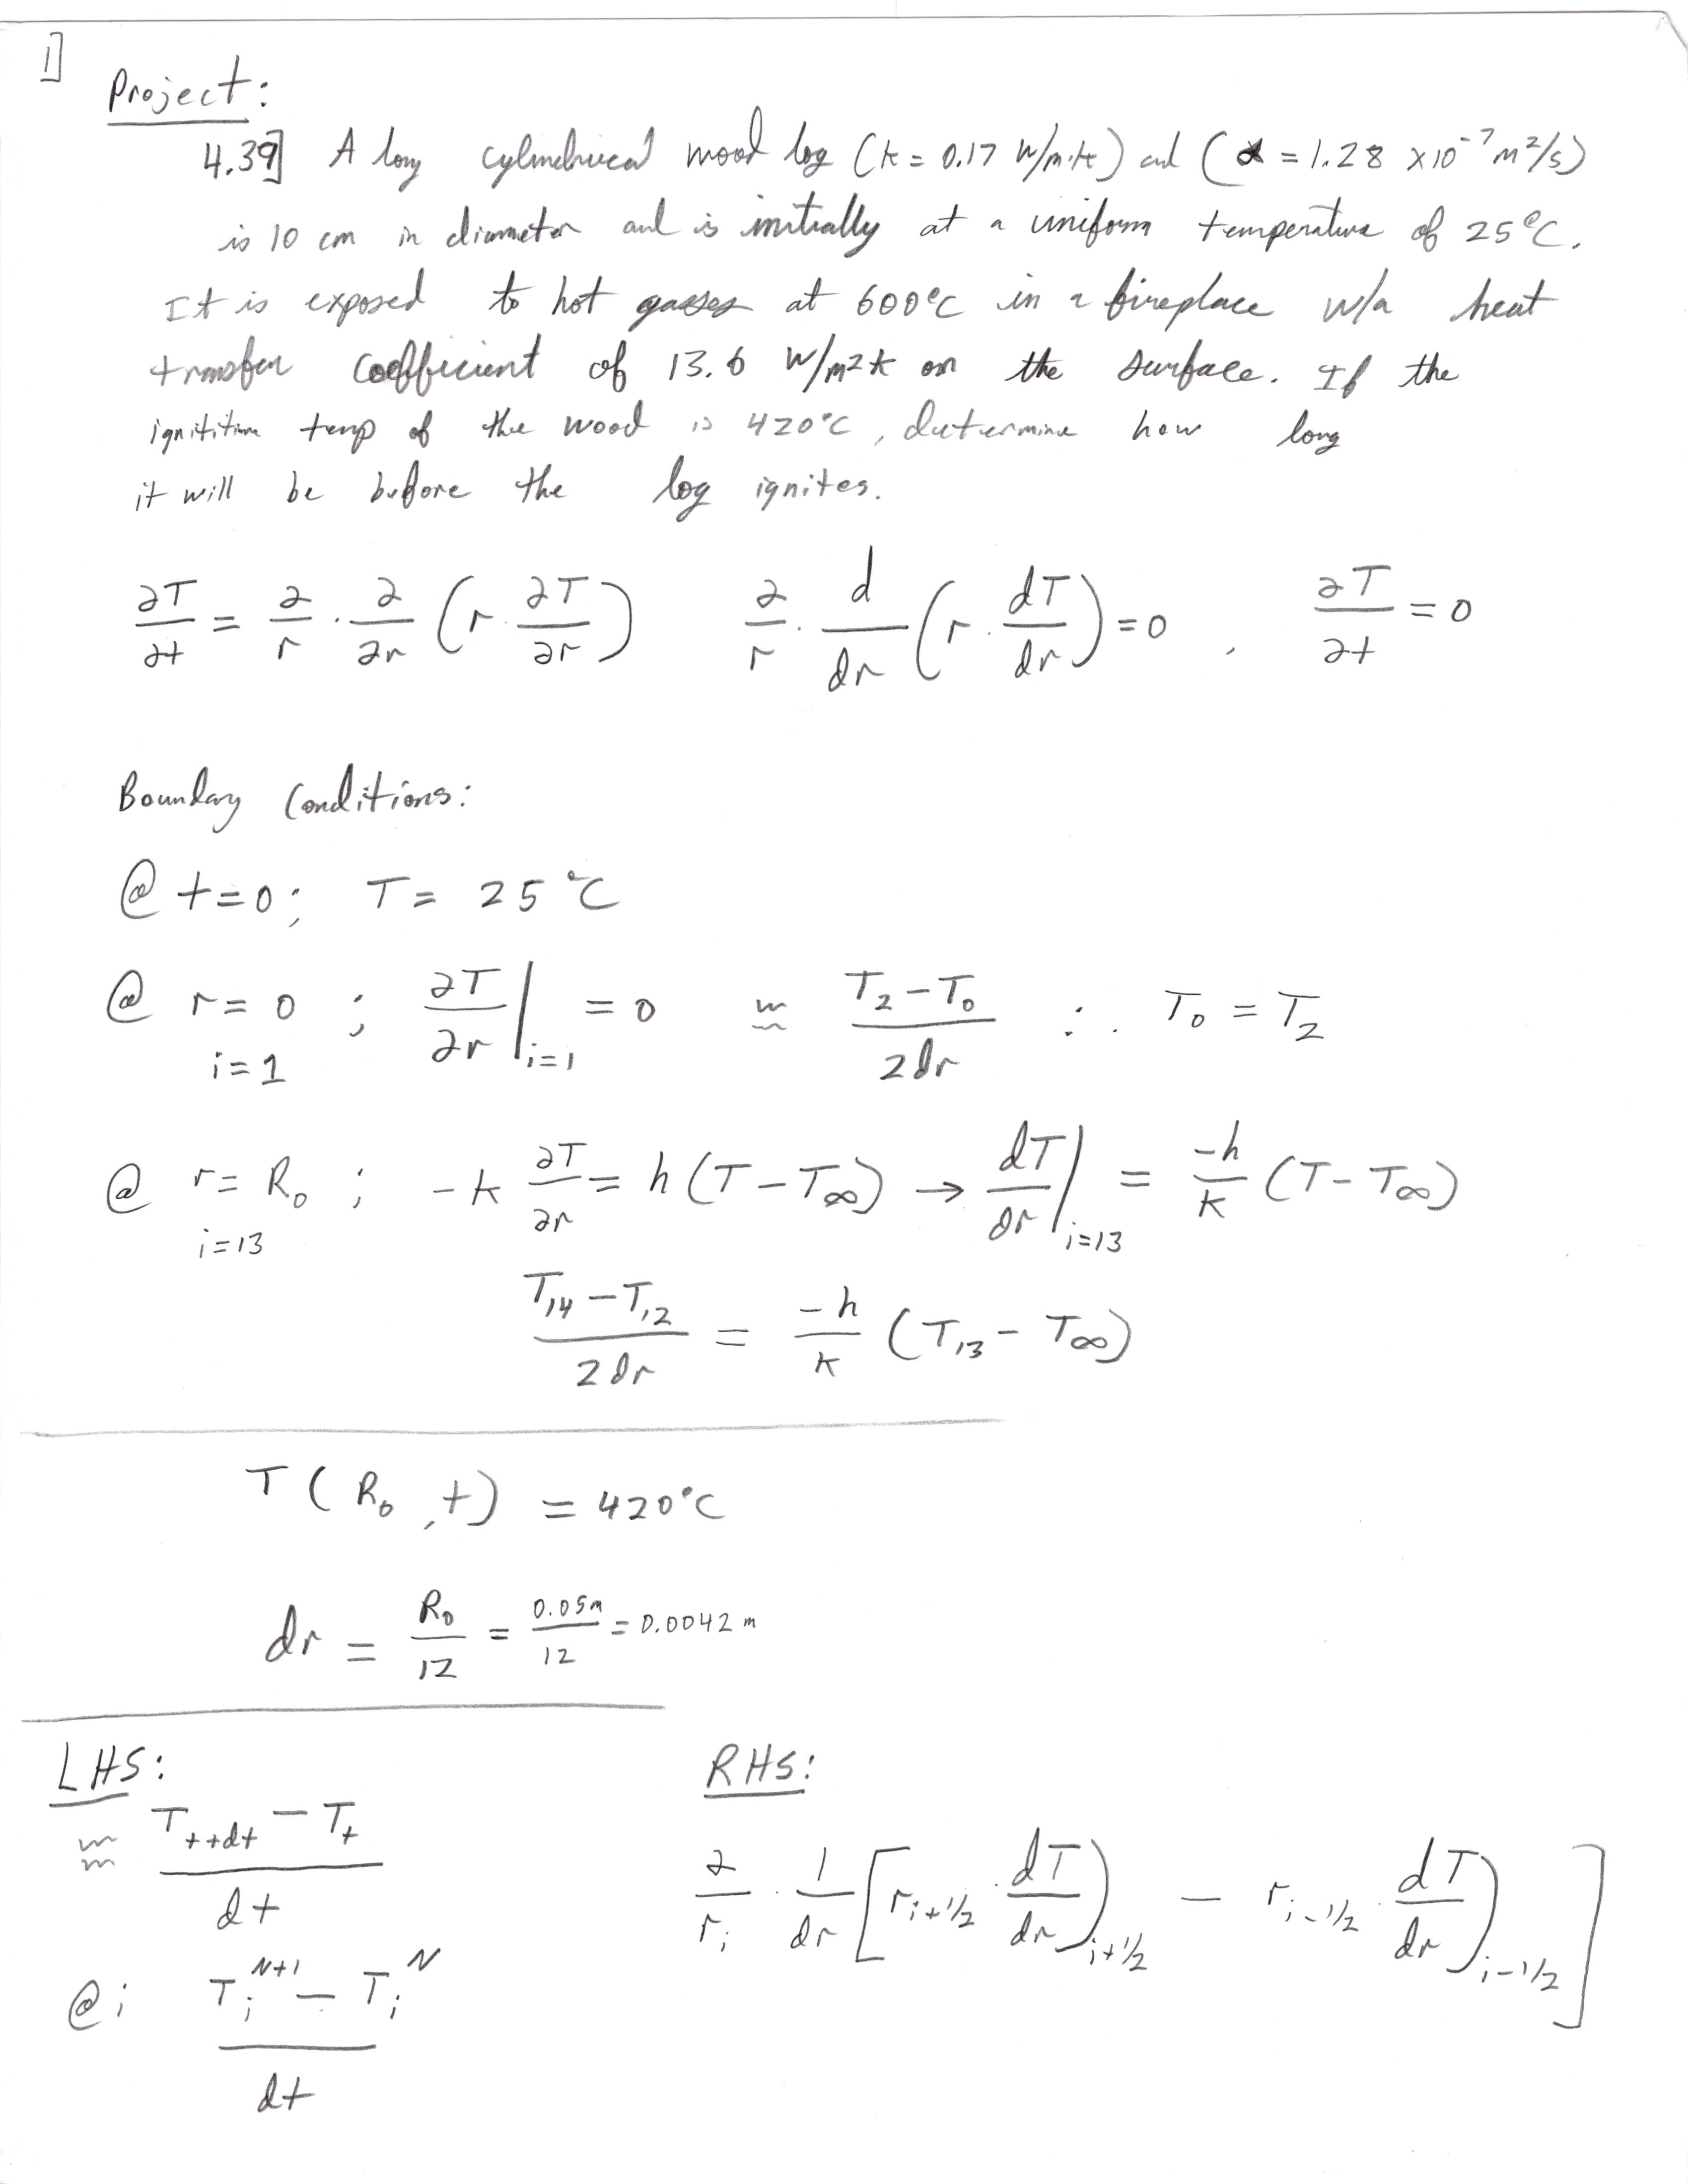 1]
Project:
4.39] A long cylindrical wood log (k = 0.17 W/m·k) and (α = 1.28 x10⁻⁷ m²/s)
is 10 cm in diameter and is initially at a uniform temperature of 25°C.
It is exposed to hot gasses at 600°C in a fireplace w/a heat
transfer coefficient of 13.6 W/m²k on the surface. If the
ignitition temp of the wood is 420°C, determine how long
it will be before the log ignites.
∂T/∂t = ∂/r · ∂/∂r (r · ∂T/∂r)   ∂/r · d/dr (r · dT/dr) = 0 , ∂T/∂t = 0
Boundary Conditions:
@ t=0; T = 25°C
@ r = 0 ; ∂T/∂r |i=1 = 0 ≈ T₂ - T₀ / 2dr ∴ T₀ = T₂
i = 1
@ r = R₀ ; -k ∂T/∂r = h (T - T∞) → dT/dr |i=13 = -h/k (T - T∞)
i = 13
T₁₄ - T₁₂ / 2dr = -h/k (T₁₃ - T∞)
T ( R₀ , t ) = 420°C
dr = R₀/12 = 0.05m/12 = 0.0042 m
LHS: RHS:
≈ T t+dt - T t / dt   ∂/rᵢ · 1/dr [ r i+1/2 · dT/dr ) i+1/2 - r i-1/2 · dT/dr ) i-1/2 ]
@ i Tᵢᴺ⁺¹ - Tᵢᴺ / dt